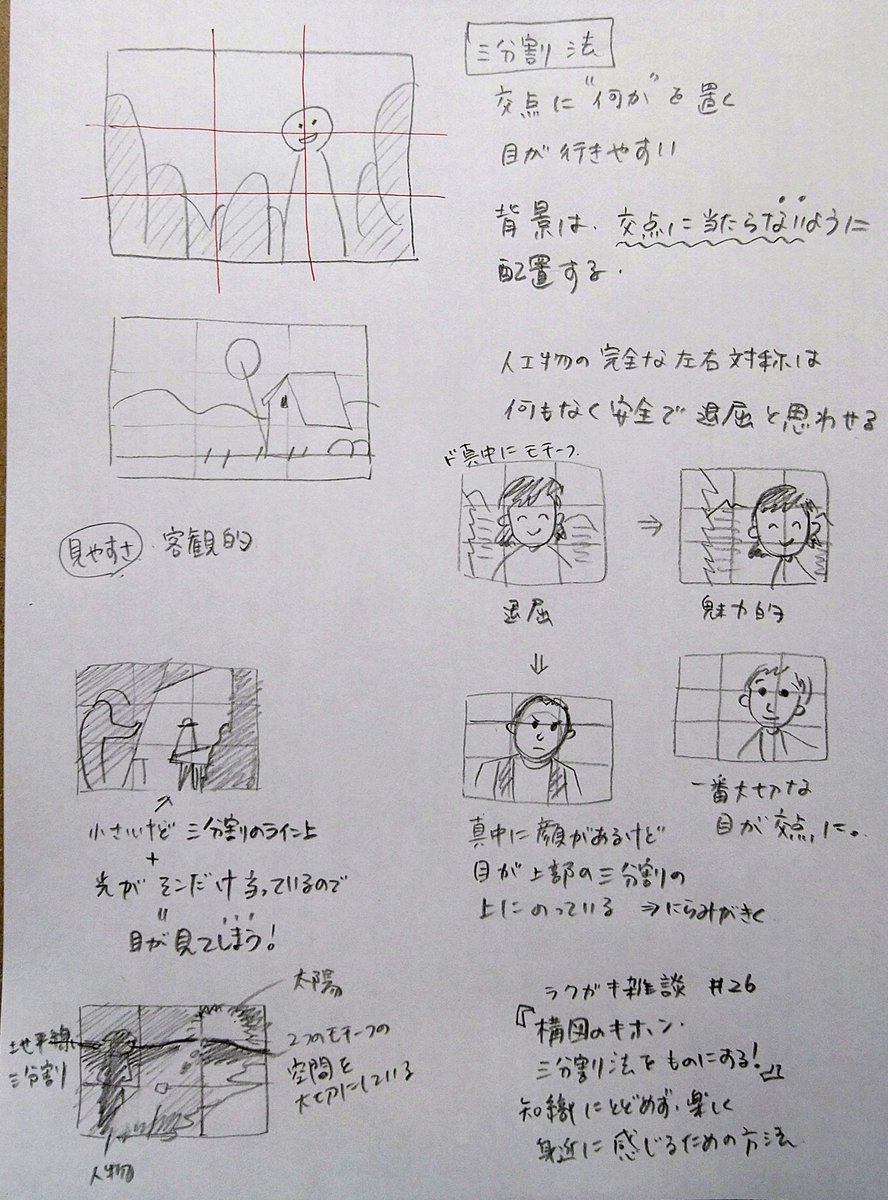 三分割法
交点に"何か"を置く
目が行きやすい
背景は、交点に当たらないように
配置する.
人工物の完全な左右対称は
何もなく安全で退屈と思わせる
ド真中にモチーフ
⇒
退屈
魅力的
見やすさ・客観的
⇓
真中に顔があるけど
目が上部の三分割の
上にのっている ⇒にらみがきく
一番大切な
目が交点に。
小さいけど三分割のライン上
+
光がそこだけ当っているので
〃
目が見てしまう!
太陽
地平線
三分割
2つのモチーフの
空間を
大切にしている
人物
ラクガキ雑談 #26
『構図のキホン・
三分割法をものにする!』
知識にとどめず、楽しく
身近に感じるための方法